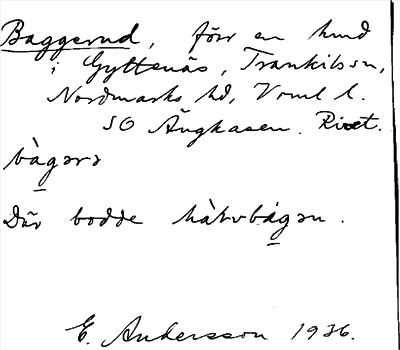 Baggerud, förr en hmd
i Gyttenäs, Trankils sn,
Nordmarks hd, Vrml l.
SO Ängkasen. Rivet.
bàgərə
Där bodde hàkvbágən.
E. Andersson 1936.